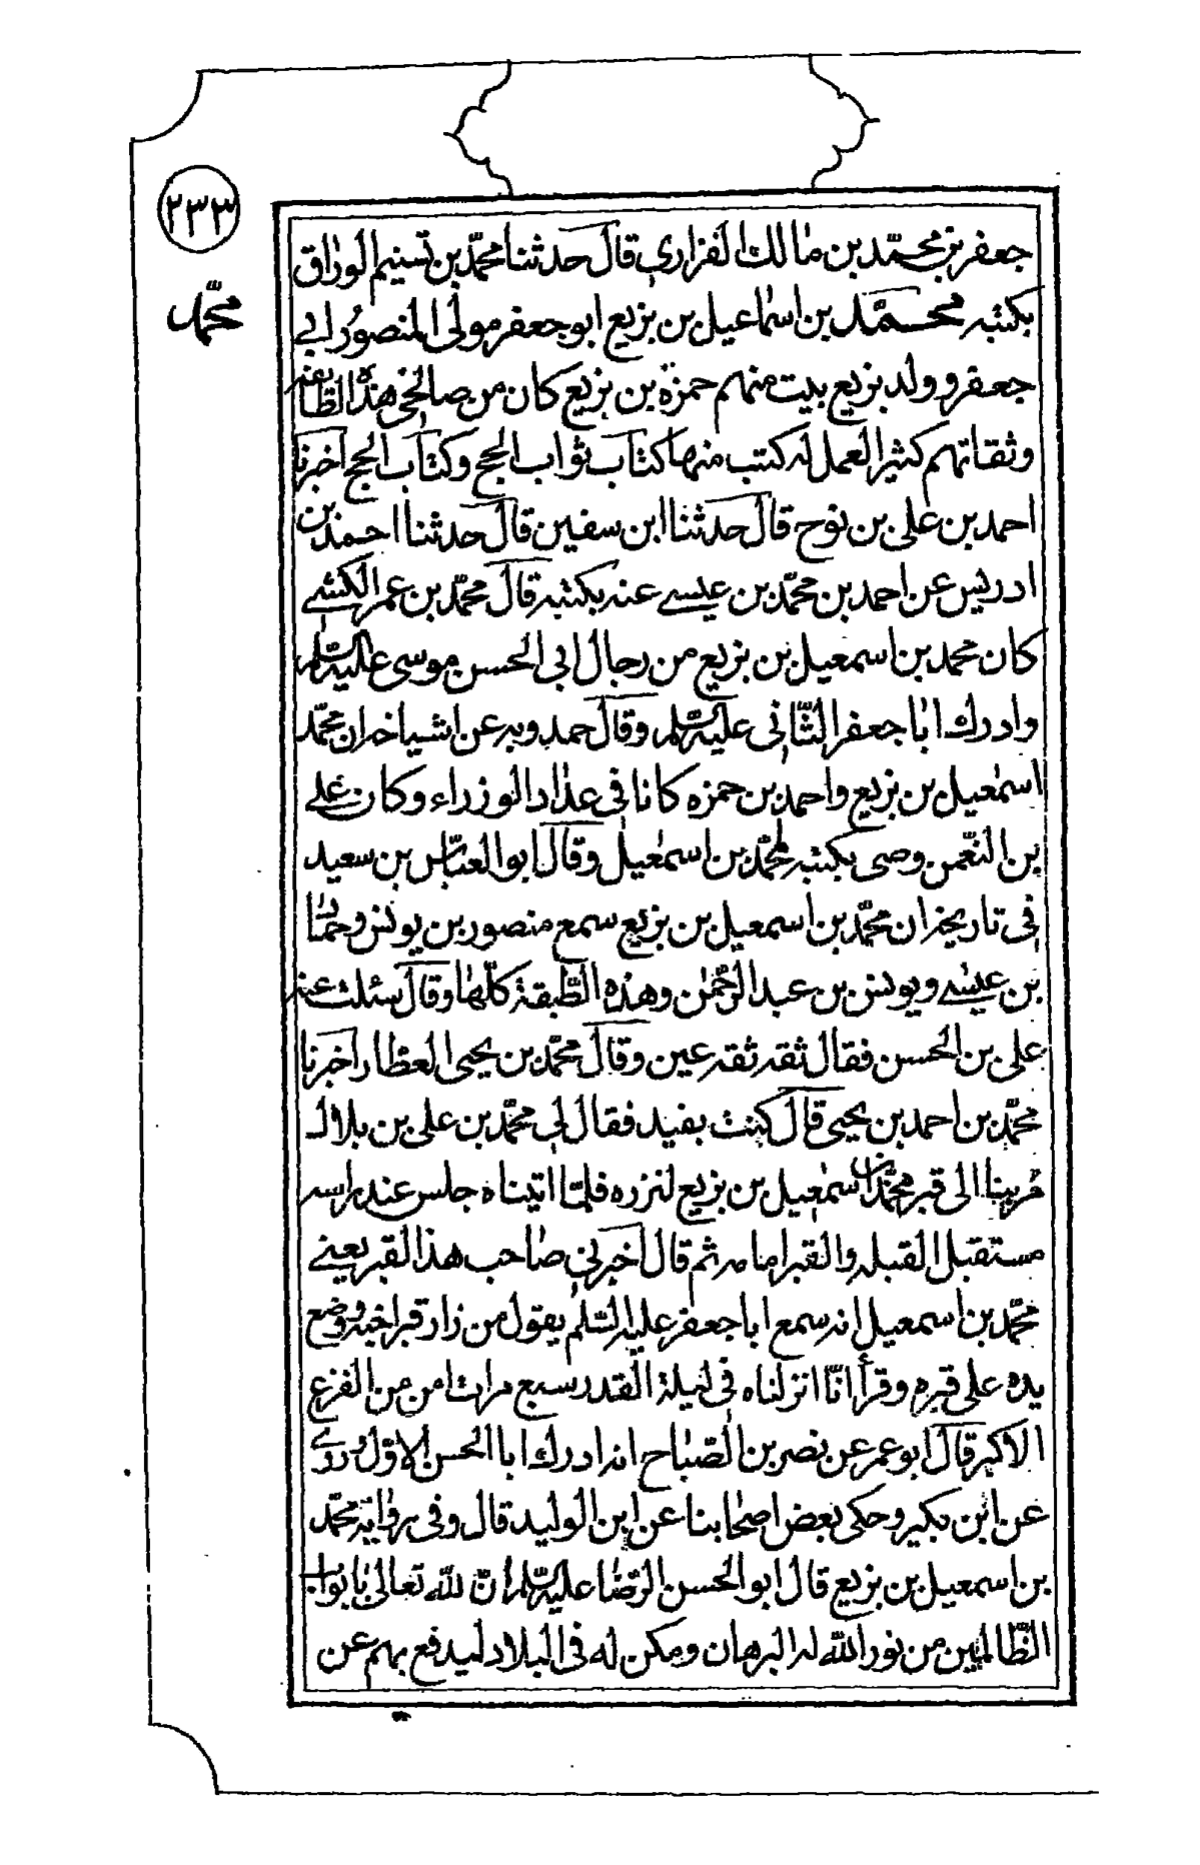 ٢٣٣
محمّد
جعفر بن محمّد بن مالك الفزاري قال حدثنا محمّد بن تسنيم الورّاق
بكتبه محمّد بن اسماعيل بن بزيع ابو جعفر مولى المنصور ابي
جعفر وولد بزيع بيت منهم حمزة بن بزيع كان من صالحي هذه الطّائفة
وثقاتهم كثير العمل له كتب منها كتاب ثواب الحج وكتاب الحج اخبرنا
احمد بن علي بن نوح قال حدثنا ابن سفين قال حدثنا احمد بن
ادريس عن احمد بن محمّد بن عيسى عنه بكتبه قال محمّد بن عمر الكشي
كان محمد بن اسمعيل بن بزيع من رجال ابي الحسن موسى عليه السّلم
وادرك ابا جعفر الثّاني عليه السّلم وقال حمدويه عن اشياخه ان محمّد
اسمعيل بن بزيع واحمد بن حمزه كانا في عداد الوزراء وكان علي
بن النّعمن وصى بكتبه لمحمّد بن اسمعيل وقال ابو العبّاس بن سعيد
في تاريخه ان محمّد بن اسمعيل بن بزيع سمع منصور بن يونس وحمّاد
بن عيسى ويونس بن عبد الرّحمن وهذه الطّبقة كلّها وقال سئلت عنه
علي بن الحسن فقال ثقه ثقه عين وقال محمّد بن يحيى العطّار اخبرنا
محمّد بن احمد بن يحيى قال كنت بفيد فقال لي محمّد بن علي بن بلال
مر بنا الى قبر محمّد بن اسمعيل بن بزيع لنزره فلمّا اتيناه جلس عند راسه
مستقبل القبله والقبر امامه ثم قال اخبرني صاحب هذا القبر يعني
محمّد بن اسمعيل انه سمع ابا جعفر عليه السّلم يقول من زار قبر اخيه ووضع
يده على قبره وقرأ انّا انزلناه في ليلة القدر سبع مرات امن من الفزع
الاكبر قال ابو عمر عن نصر بن الصّباح انه ادرك ابا الحسن الاوّل وروى
عن ابن بكير وحكى بعض اصحابنا عن ابن الوليد قال وفي رواية محمّد
بن اسمعيل بن بزيع قال ابو الحسن الرّضا عليه السّلم انّ للّه تعالى بابواب
الظّالمين من نور اللّه له البرهان ومكن له في البلاد ليدفع بهم عن